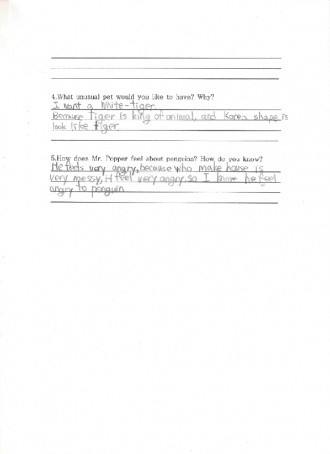 4.What unusual pet would you like to have? Why?
I want a White-tiger.
Because tiger is king of animal, and Korea shape is
look like tiger.
5.How does Mr. Popper feel about penguins? How do you know?
He feels very angry, because who make house is
very messy, feel very angry. so I know he feel
angry to penguin